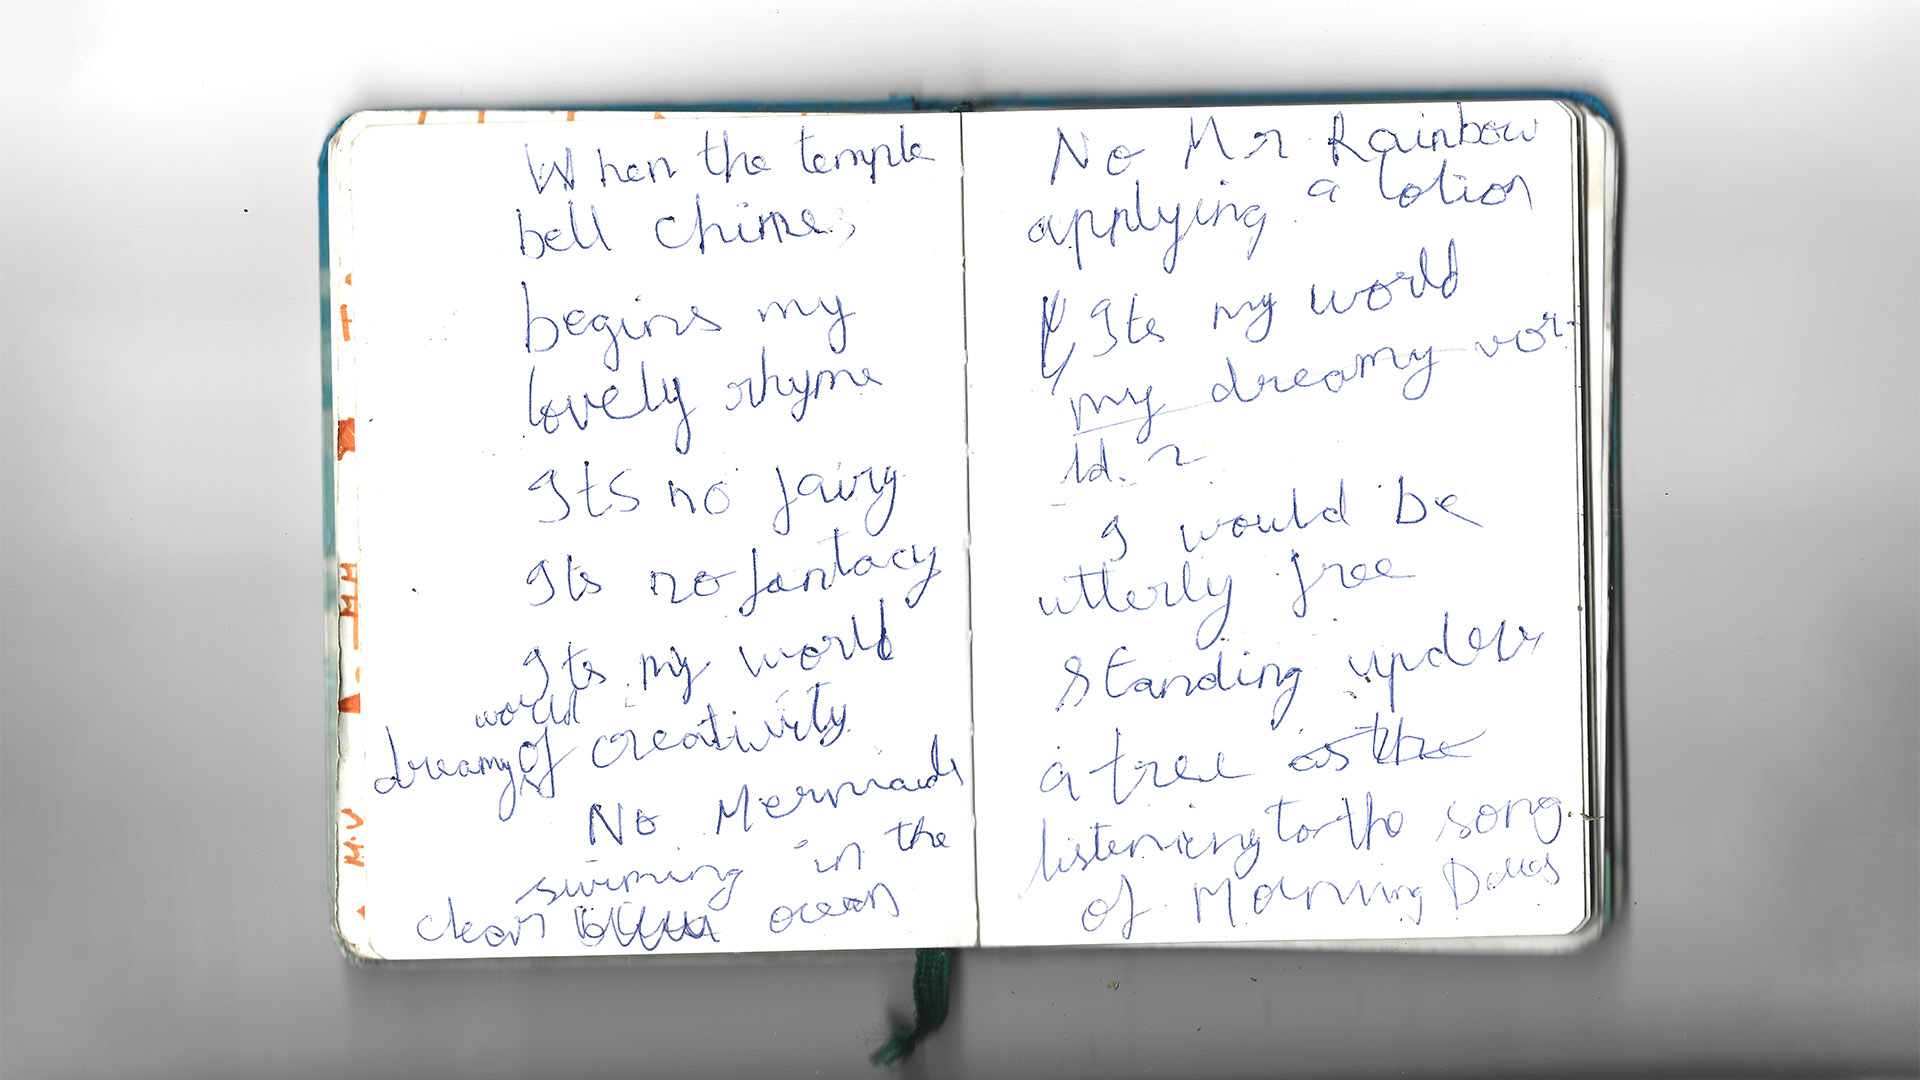 When the temple
bell chimes
begins my
lovely rhyme
Its no fairy
Its no fantacy
Its my world
world
dreamy of creativity
No Mermaids
swiming in the
clean ocean
No Mr Rainbow
applying a lotion
Its my world
my dreamy wor-
ld.
I would be
utterly free
Standing under
a tree as the
listening to the song
of Morning Doves
M.V